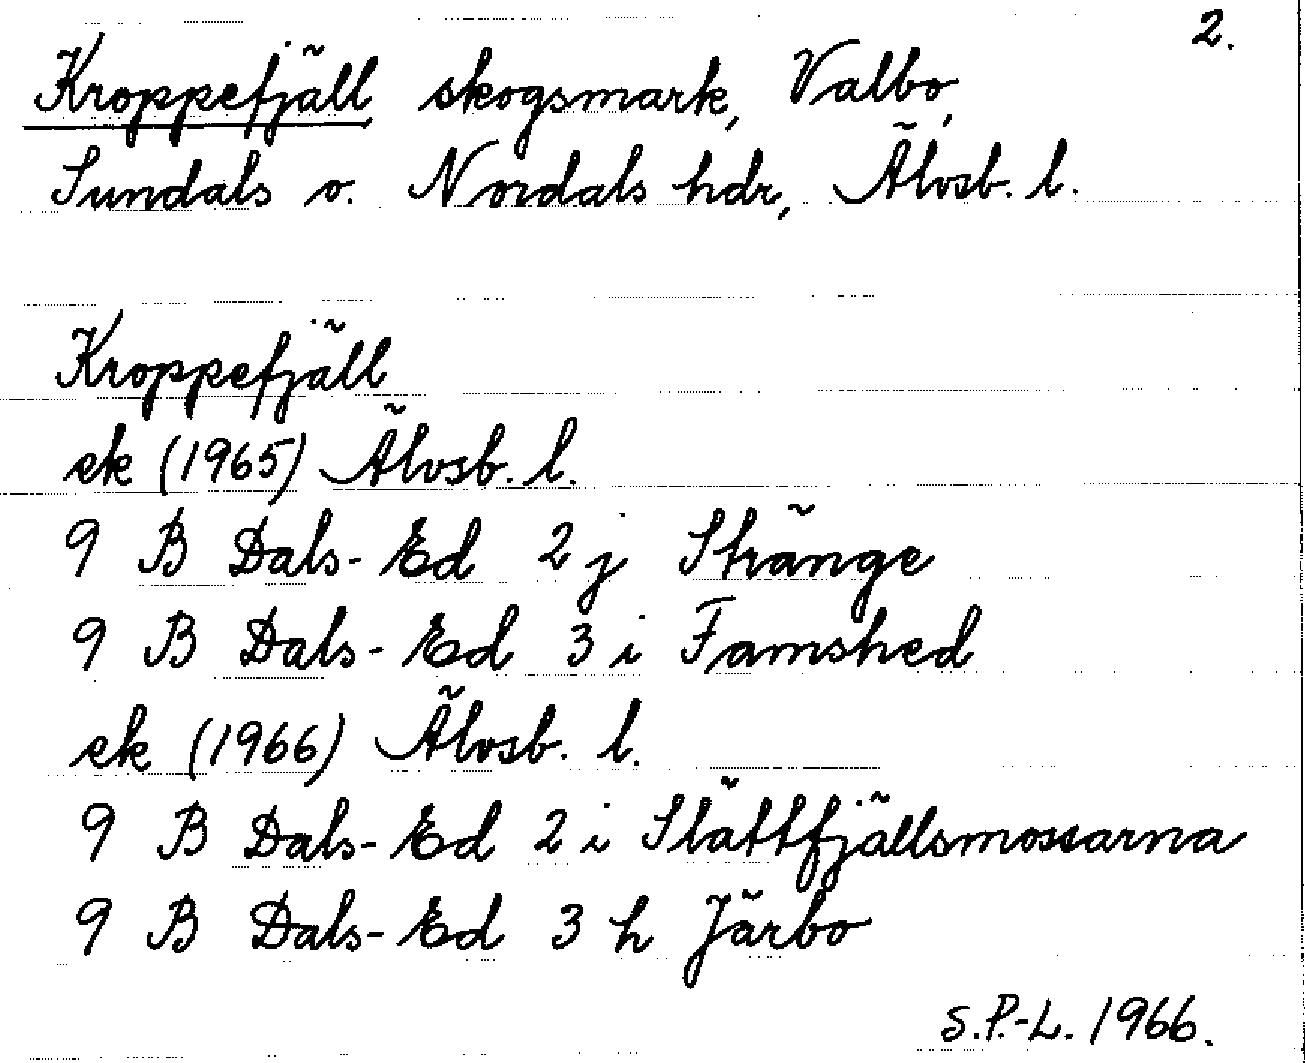 2.
Kroppefjäll skogsmark, Valbo,
Sundals o. Nordals hdr, Älvsb. l.
Kroppefjäll
ek (1965) Älvsb. l.
9 B Dals-Ed 2 j Stränge
9 B Dals-Ed 3 i Famshed
ek (1966) Älvsb. l.
9 B Dals-Ed 2 i Slättfjällsmossarna
9 B Dals-Ed 3 h Järbo
S.P.-L. 1966.